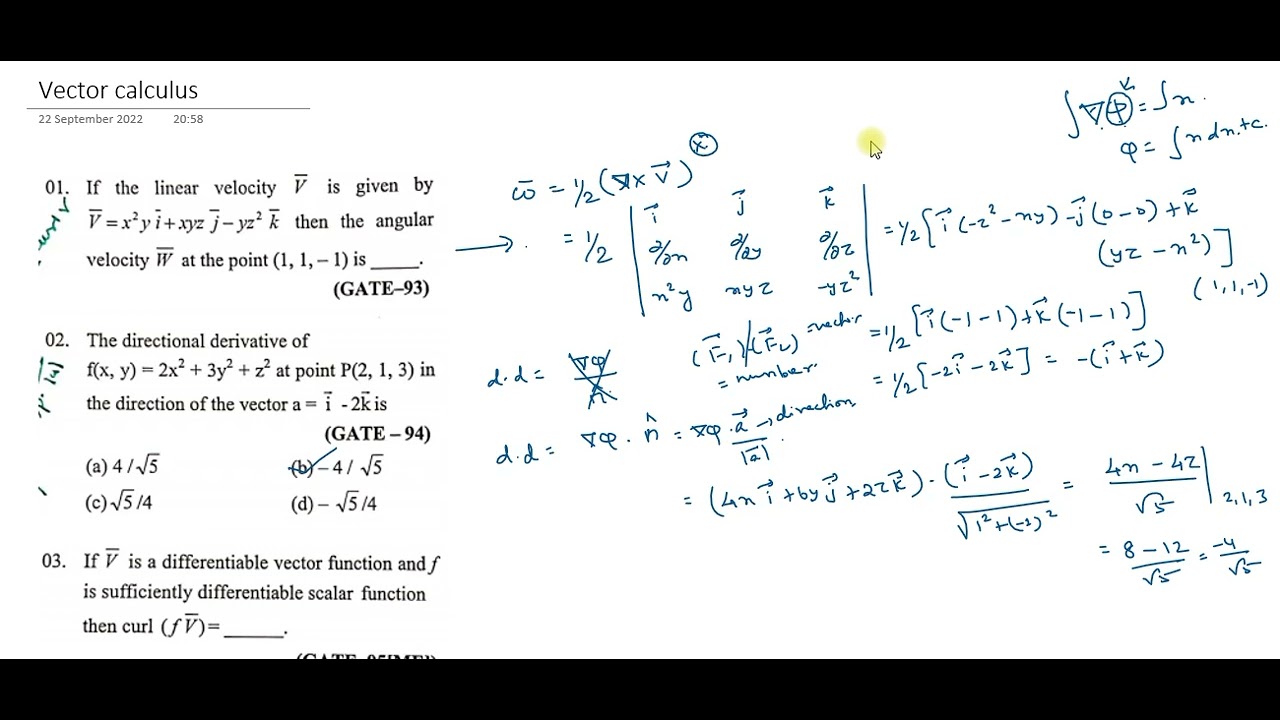 Vector calculus
22 September 2022 20:58
01. If the linear velocity V̅ is given by
V̅ = x²y i̅ + xyz j̅ – yz² k̅ then the angular
velocity W̅ at the point (1, 1, – 1) is ______.
(GATE–93)
02. The directional derivative of
f(x, y) = 2x² + 3y² + z² at point P(2, 1, 3) in
the direction of the vector a = i̅ - 2k̅ is
(GATE – 94)
(a) 4 / √5 (b) – 4 / √5
(c) √5 / 4 (d) – √5 / 4
03. If V̅ is a differentiable vector function and f
is sufficiently differentiable scalar function
then curl (f V̅) = ______.
∫ ∇φ = ∫ x.
φ = ∫ x dx + c.
ω̅ = 1/2 (∇ × V⃗)
= 1/2 | i⃗ j⃗ k⃗
∂/∂x ∂/∂y ∂/∂z
x²y xyz -yz² |
= 1/2 [ i⃗ (-z² - xy) - j⃗ (0 - 0) + k⃗
(yz - x²) ]
(1, 1, -1)
= 1/2 [ i⃗ (-1 -1) + k⃗ (-1 -1) ]
= 1/2 [ -2i⃗ - 2k⃗ ] = -(i⃗ + k⃗)
(F⃗₁)·(F⃗₂) = vector
= number
d.d = ∇φ / n̂
d.d = ∇φ . n̂ = ∇φ . a⃗ / |a⃗| → direction
= (4x i⃗ + 6y j⃗ + 2z k⃗) . (i⃗ - 2k⃗) / √(1² + (-2)²) = (4x - 4z) / √5 | 2, 1, 3
= (8 - 12) / √5 = -4 / √5